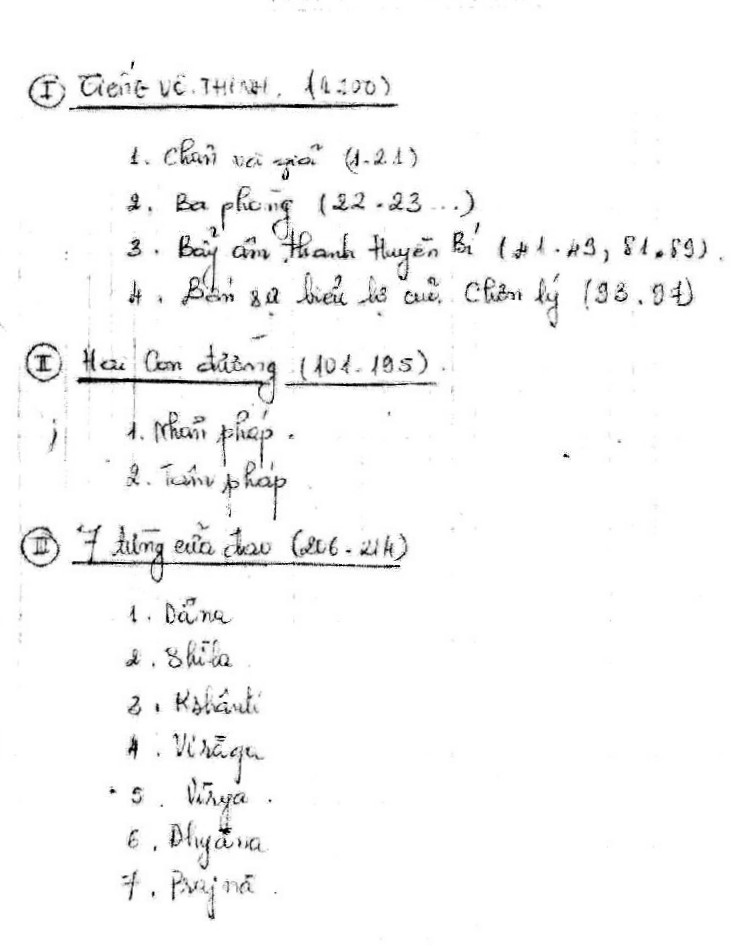 I Tiếng VÔ THINH. (1-100)
1. Chân và giả (1-21)
2. Ba phòng (22-23...)
3. Bảy âm thanh Huyền Bí (41-49, 81-89).
4. Bốn sự biểu lộ của Chơn lý (93-97)
II Hai Con đường (101-195).
1. Nhãn pháp.
2. Tâm pháp
III 7 từng cửa đạo (206-214)
1. Dâna
2. Shîla
3. Kshânti
4. Virâga
5. Vîrya.
6. Dhyâna
7. Prajnâ.